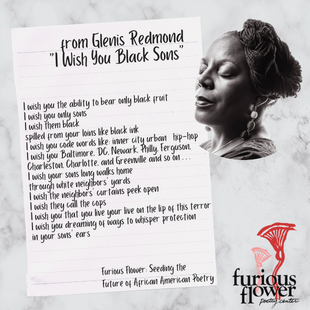 from Glenis Redmond
"I Wish You Black Sons"
I wish you the ability to bear only black fruit
I wish you only sons
I wish them black
spilled from your loins like black ink
I wish you code words like: inner city urban hip-hop
I wish you Baltimore, DC, Newark, Philly, Ferguson,
Charleston, Charlotte, and Greenville and so on . . .
I wish your sons long walks home
through white neighbors' yards
I wish the neighbors' curtains peek open
I wish they call the cops
I wish you that you live your live on the lip of this terror
I wish you dreaming of ways to whisper protection
in your sons' ears
Furious Flower: Seeding the
Future of African American Poetry
furious
flower
poetry center